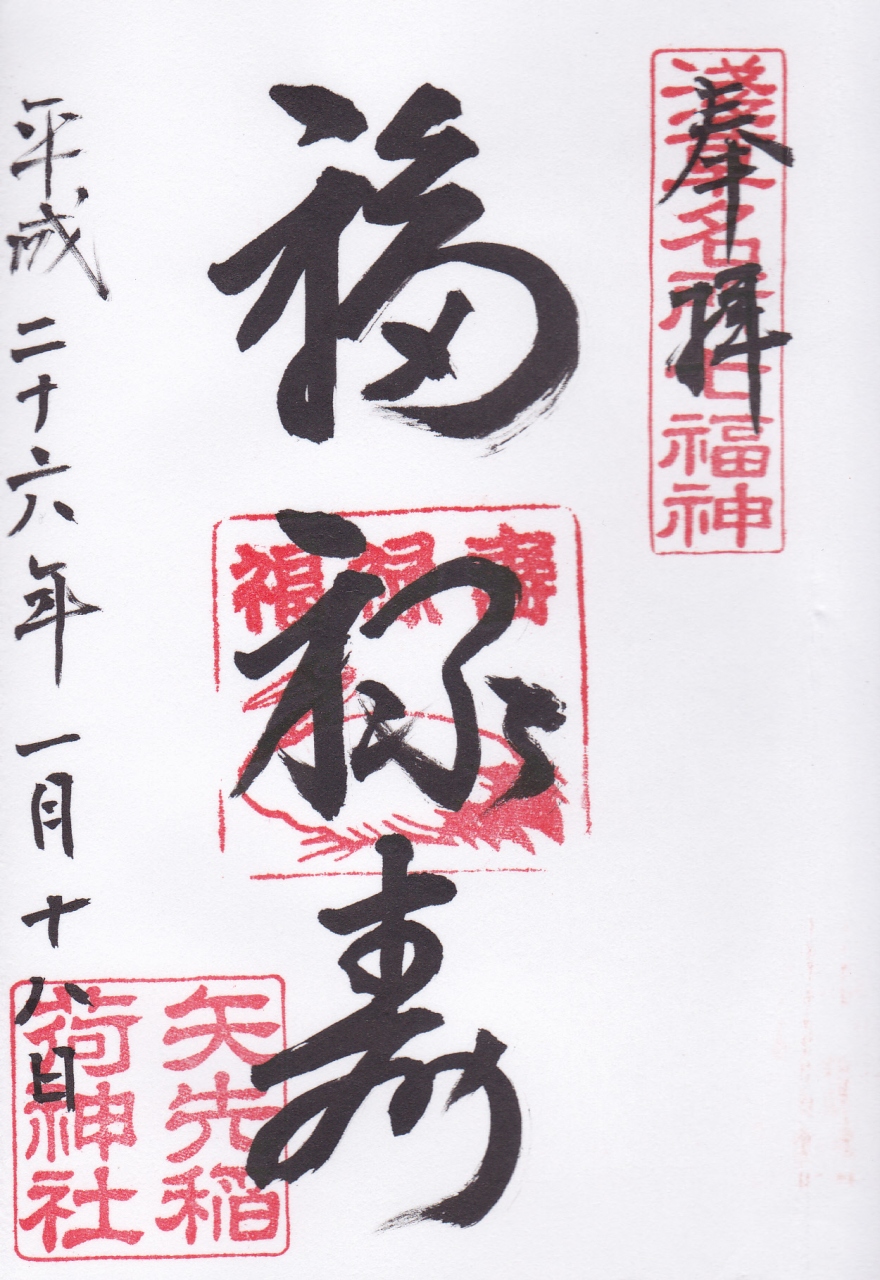 奉拝
淺草名所七福神
福禄寿
福禄壽
平成二十六年一月十八日
矢先稲
荷神社